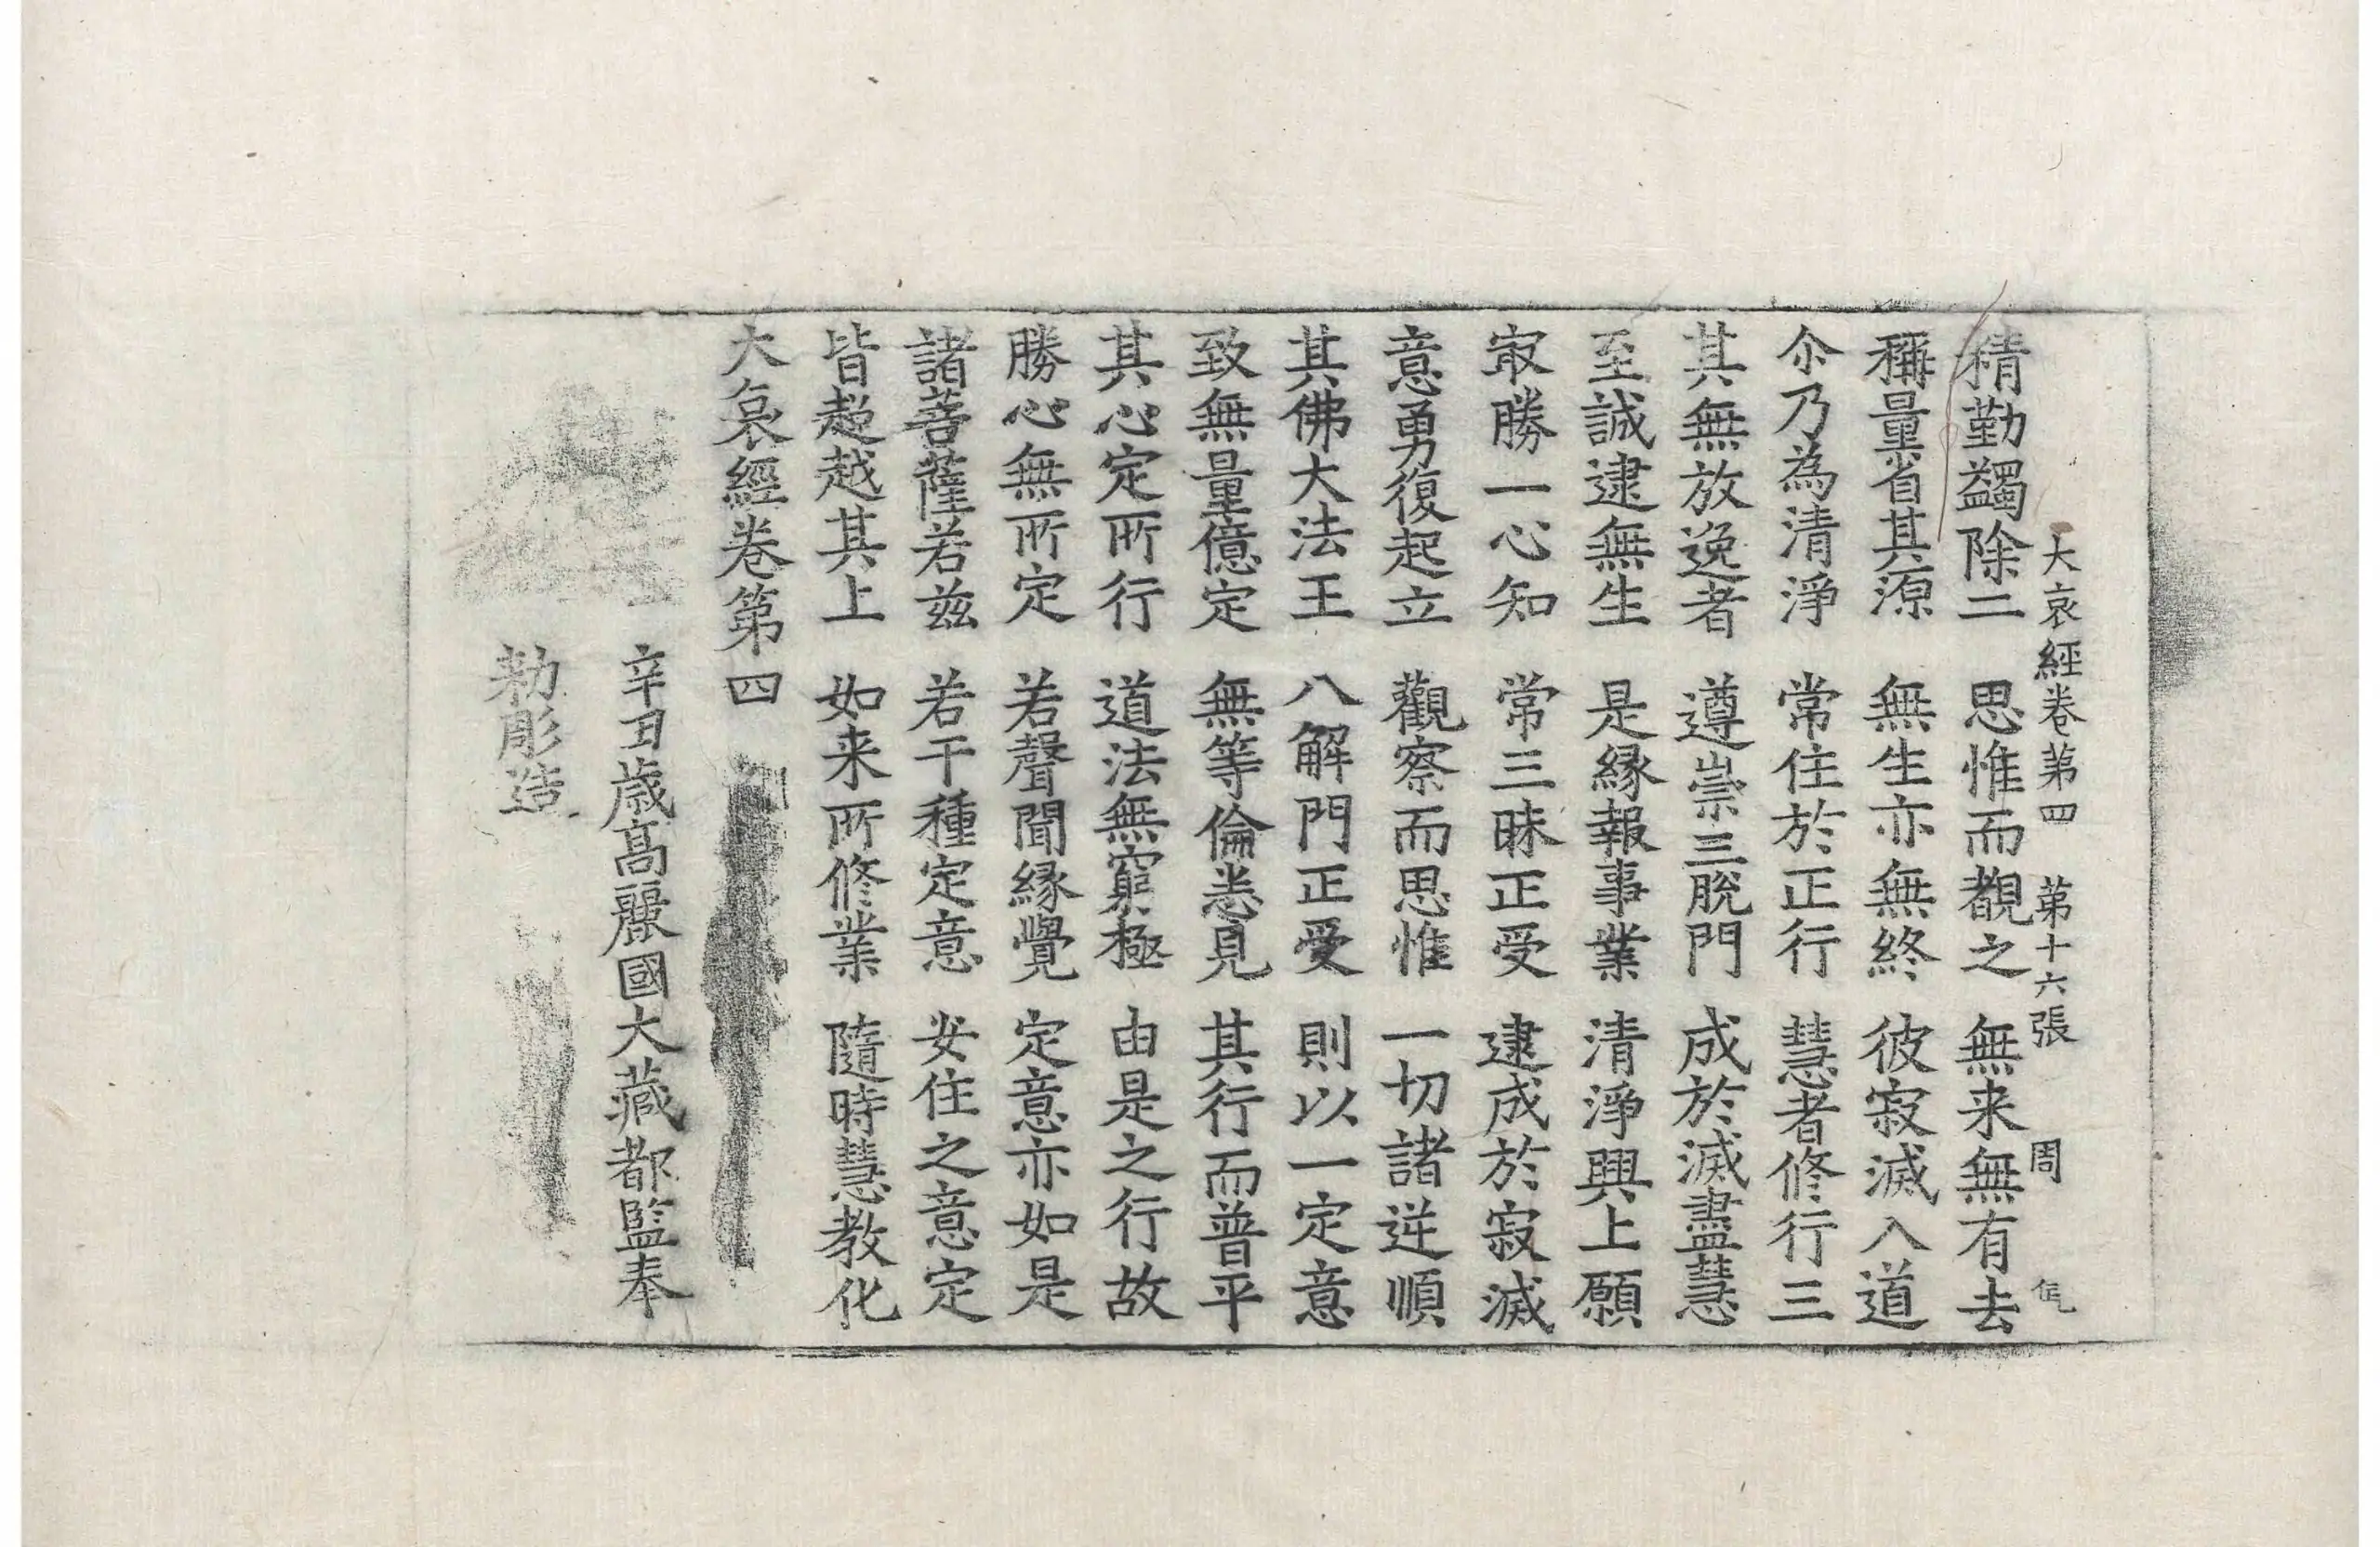 大哀經卷第四 第十六張 周
精勤蠲除二 思惟而覩之 無来無有去
稱量省其源 無生亦無終 彼寂滅入道
尒乃為清淨 常住於正行 慧者修行三
其無放逸者 遵崇三脫門 成於滅盡慧
至誠逮無生 是緣報事業 清淨興上願
㝡勝一心知 常三昧正受 逮成於寂滅
意勇復起立 觀察而思惟 一切諸逆順
其佛大法王 八解門正受 則以一定意
致無量億定 無等倫悉見 其行而普平
其心定所行 道法無窮極 由是之行故
勝心無所定 若聲聞緣覺 定意亦如是
諸菩薩若茲 若干種定意 安住之意定
皆超越其上 如来所修業 隨時慧教化
大哀經卷第四
辛丑歲高麗國大藏都監奉
勅彫造